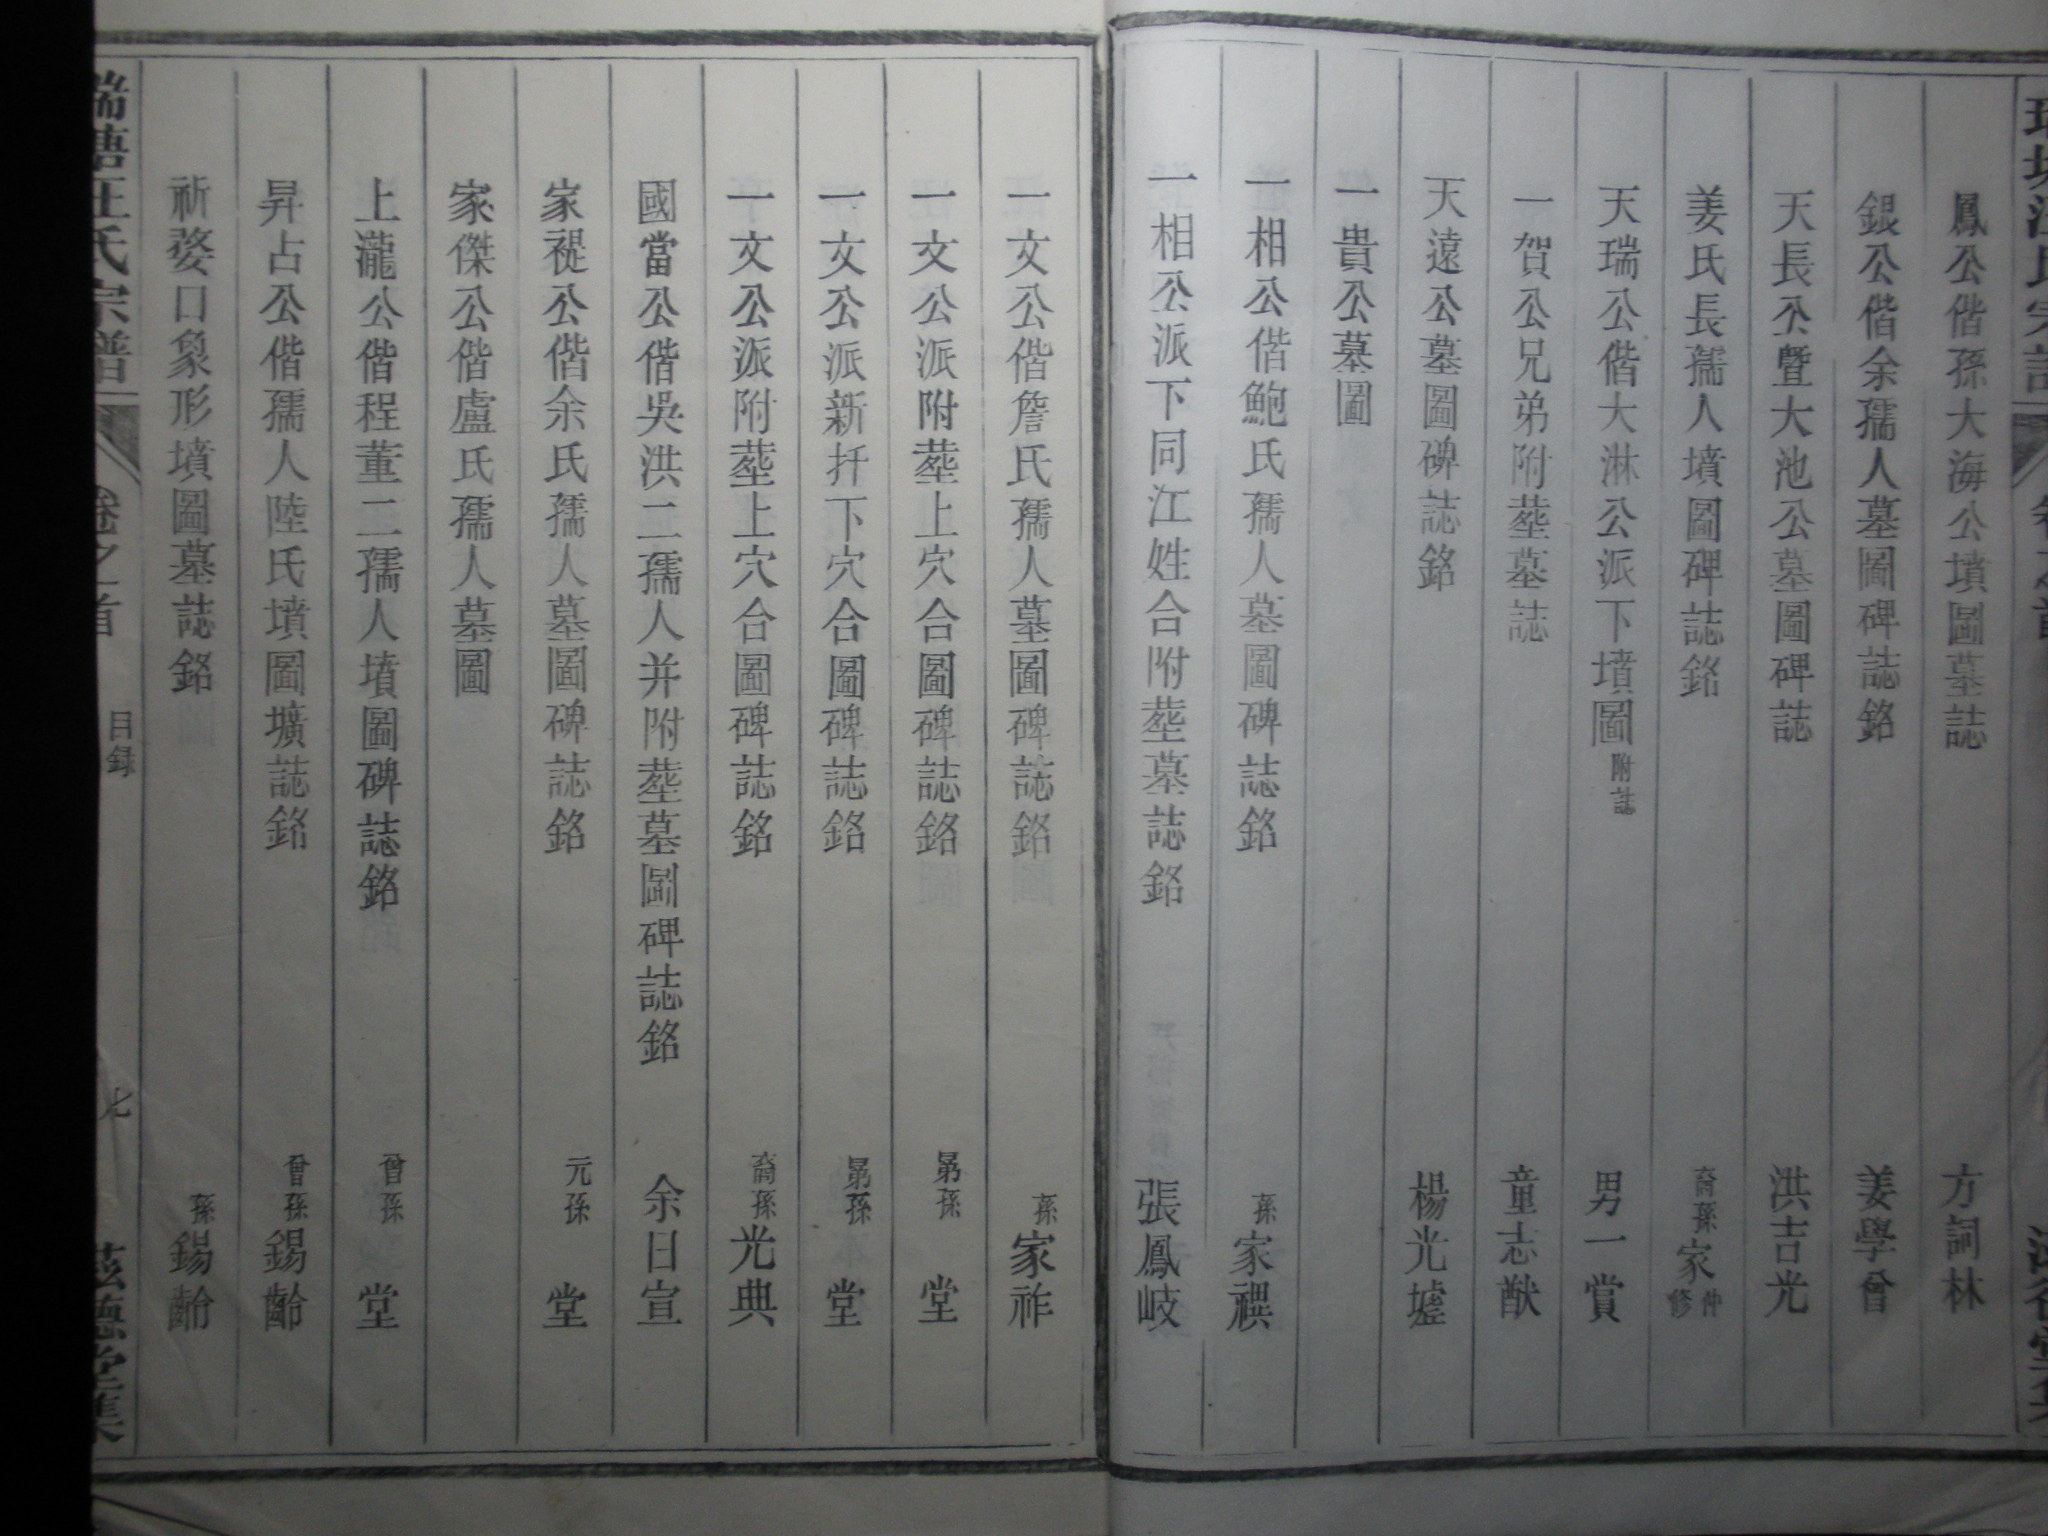 鳳公偕孫大海公墳圖墓誌 方詞林
銀公偕余孺人墓圖碑誌銘 姜學曾
天長公暨大池公墓圖碑誌 洪吉光
姜氏長孺人墳圖碑誌銘 裔孫家仲修
天瑞公偕大淋公派下墳圖附誌 男一賞
一賀公兄弟附塟墓誌 童志猷
天遠公墓圖碑誌銘 楊光墟
一貴公墓圖
一相公偕鮑氏孺人墓圖碑誌銘 孫家禩
一相公派下同江姓合附塟墓誌銘 張鳳岐
一文公偕詹氏孺人墓圖碑誌銘 孫家祚
一文公派附塟上穴合圖碑誌銘 晜孫堂
一文公派新扦下穴合圖碑誌銘 晜孫堂
一文公派附塟上穴合圖碑誌銘 裔孫光典
國當公偕吳洪二孺人并附塟墓圖碑誌銘 余日宣
家禔公偕余氏孺人墓圖碑誌銘 元孫堂
家傑公偕盧氏孺人墓圖
上瀧公偕程董二孺人墳圖碑誌銘 曾孫堂
昇占公偕孺人陸氏墳圖壙誌銘 曾孫錫齡
祈婺口象形墳圖墓誌銘 孫錫齡
氏宗譜 卷之首 目録 七 德堂集